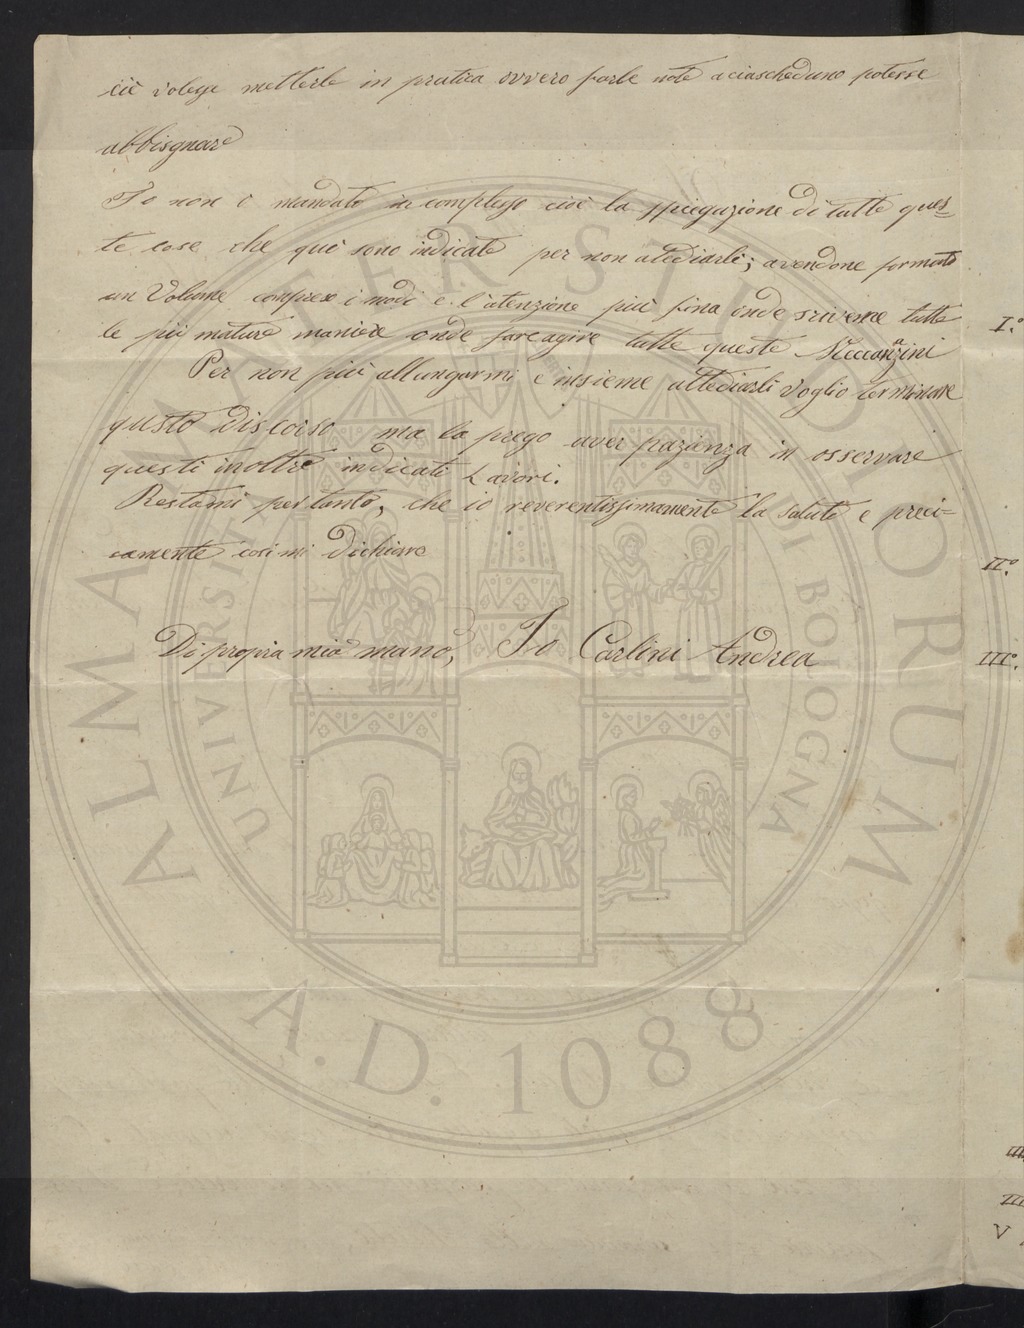 ciò volesse metterle in pratica ovvero farle note a ciascheduno potesse
abbisgnare
Io non ò mandato in complesso cioè la spiegazione di tutte ques=
te cose che quì sono indicate per non atediarli; avendone formato
un Volume compreso i modi e l'atenzione più fina onde scriverne tutte
le più mature maniere onde far agire tutte queste Meccanazini
Per non più allungarmi e insieme attediarli voglio terminare
questo discorso ma la prego aver pazienza in osservare
questi inoltre indicati Lavori.
Restami pertanto, che io reverentissimamente la saluto e preci-
camente così mi dichiaro
Di propria mia mano, Io Carlini Andrea
I.º
II.º
III.º
V
ALMA MATER STUDIORUM
UNIVERSITÀ DI BOLOGNA
A.D. 1088